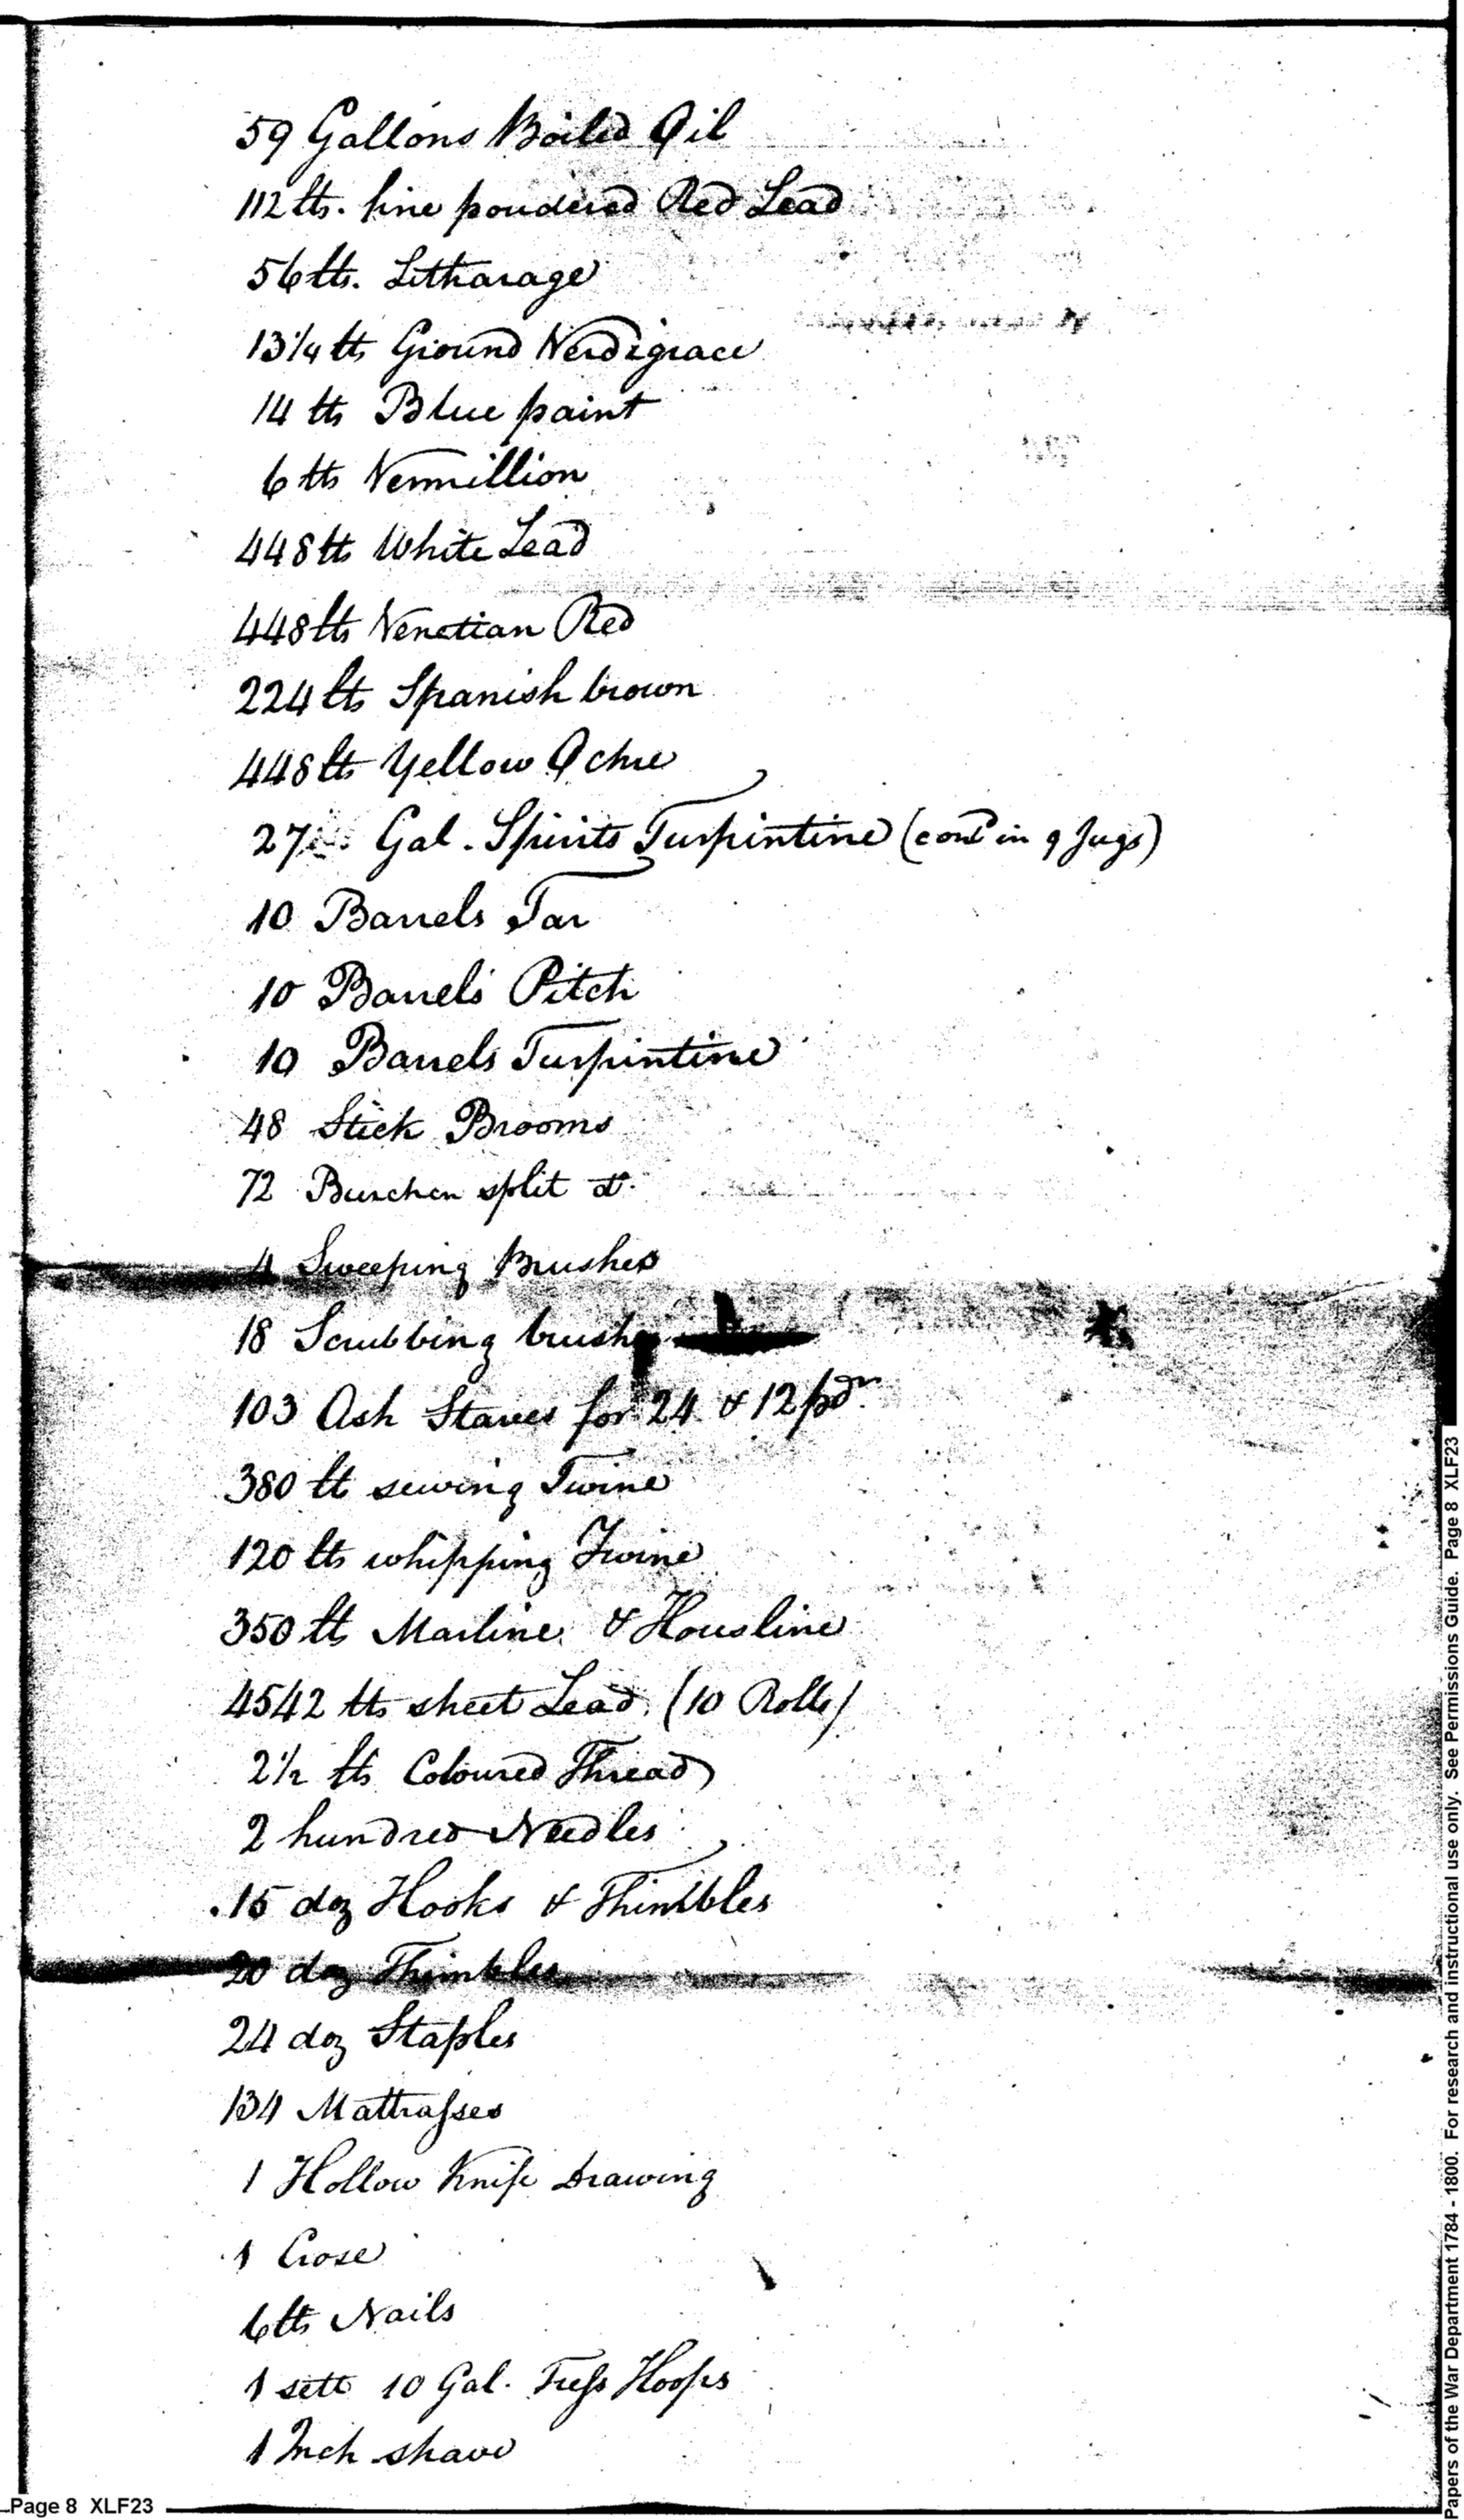 59 Gallons Boiled Oil
112 lbs. fine poudered Red Lead
56 lbs. Litharage
13 1/4 lbs Ground Verdigrace
14 lbs Blue paint
6 lbs Vermillion
448 lbs White Lead
448 lbs Venetian Red
224 lbs Spanish brown
448 lbs Yellow Ochre
27 Gal. Spirits Turpintine (contd in 9 Jugs)
10 Barrels Tar
10 Barrels Pitch
10 Barrels Turpintine
48 Stick Brooms
72 Burchen split do.
4 Sweeping Brushes
18 Scrubbing brushes
103 Ash Staves for 24 & 12 pdrs.
380 lb sewing Twine
120 lbs whipping Twine
350 lbs Marline & Housline
4542 lbs sheet Lead (10 Rolls)
2 1/2 lbs Coloured Thread
2 hundred Needles
15 doz Hooks & Thimbles
20 doz Thimbles
24 doz Staples
134 Mattrasses
1 Hollow Knife Drawing
1 Croze
6 lbs Nails
1 sett 10 Gal. Truss Hoops
1 Inch shave
Page 8 XLF23
Papers of the War Department 1784 - 1800. For research and instructional use only. See Permissions Guide. Page 8 XLF23